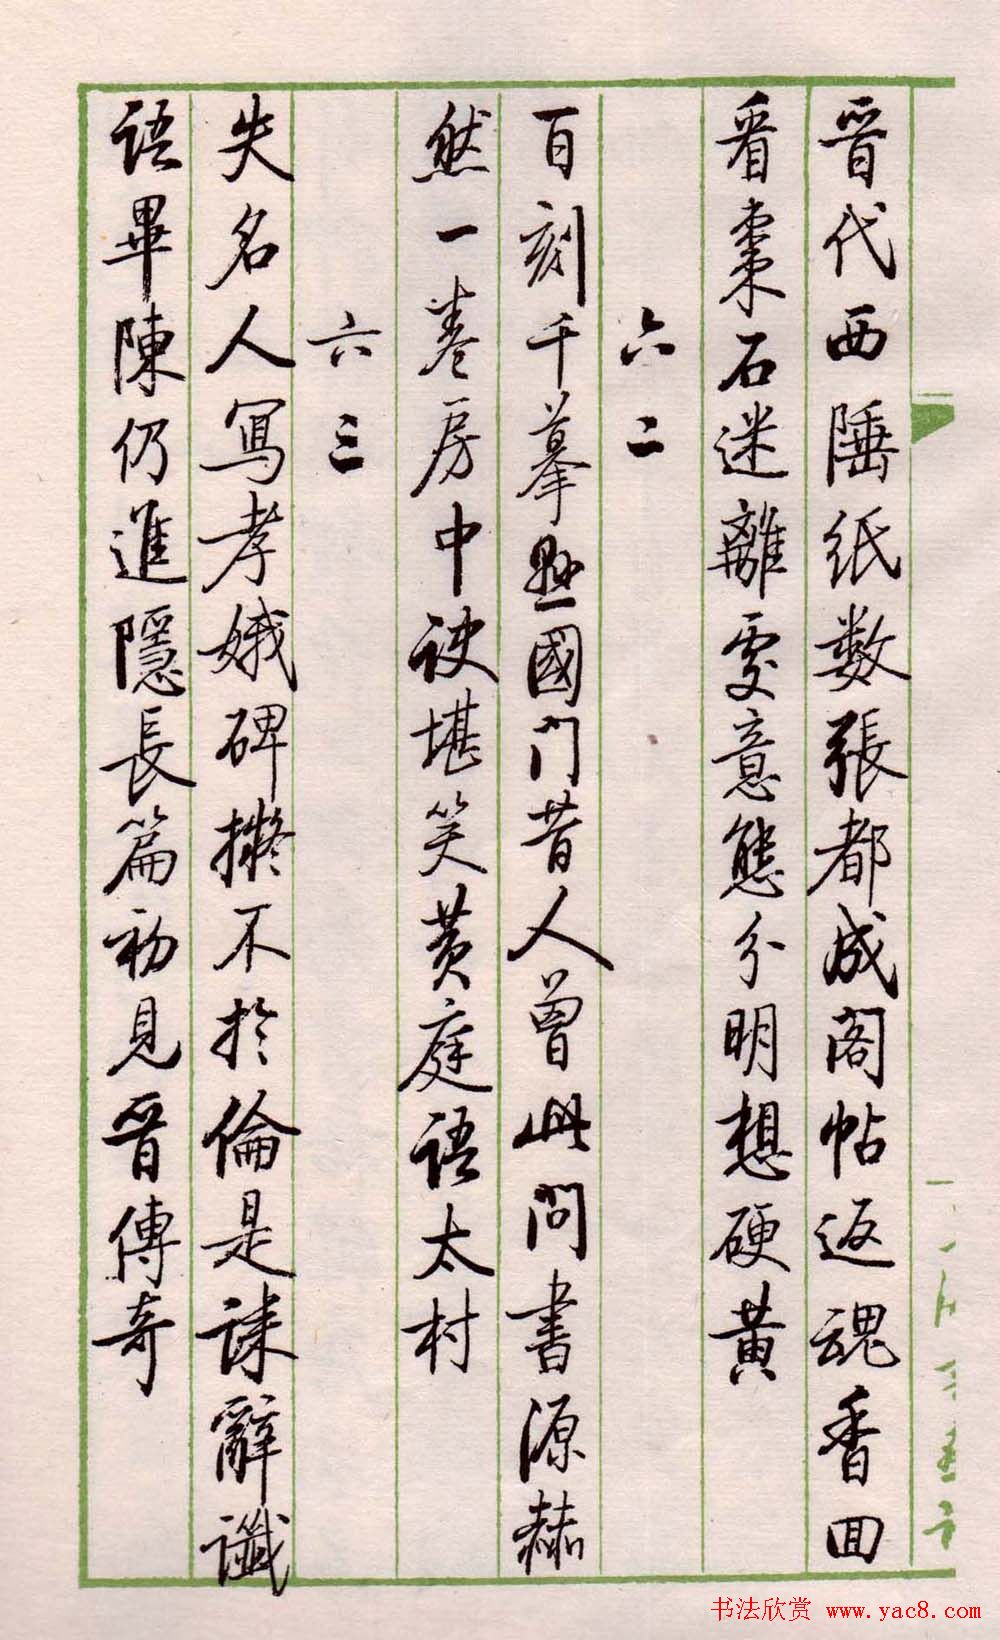 晉代西陲纸数張都成阁帖返魂香回
看棗石迷離處意態分明想硬黄
六二
百刻千摹懸國门昔人曾此问書源赫
然一卷房中诀堪笑黄庭语太村
六三
失名人寫孝娥碑擬不於倫是誄辭讖
语畢陳仍進隱長篇初見晉傳奇
书法欣赏 www.yac8.com